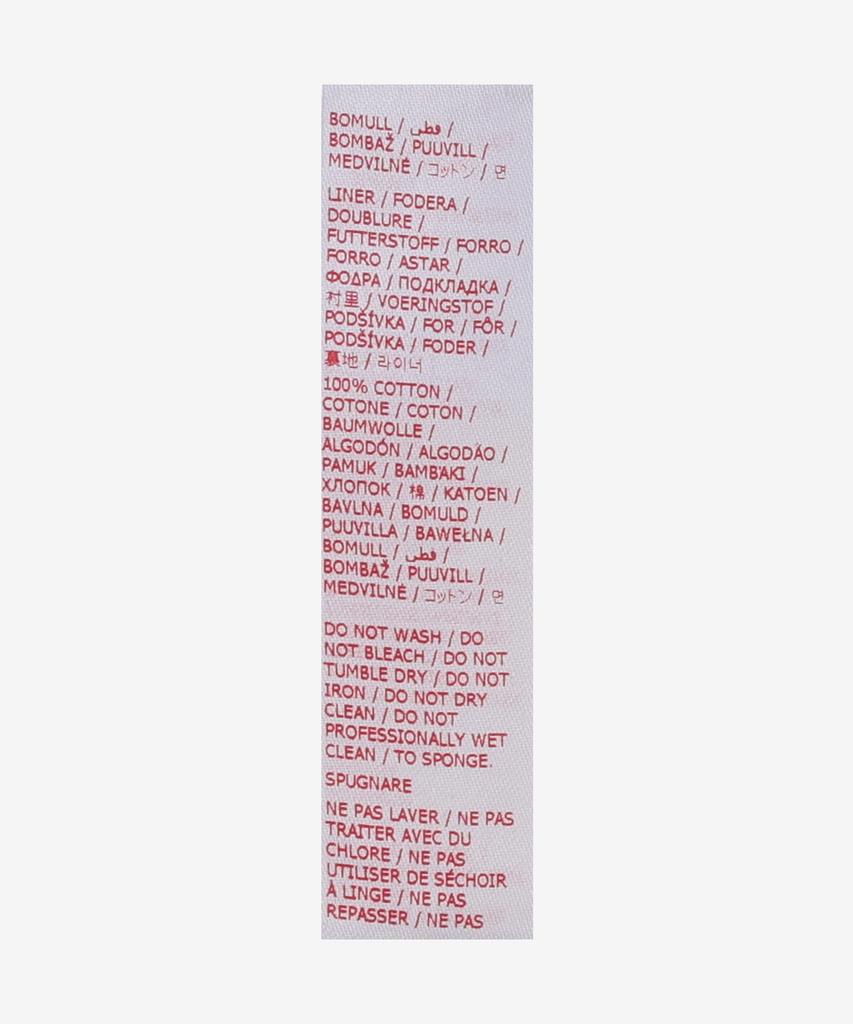 BOMULL / قطن /
BOMBAŽ / PUUVILL /
MEDVILNĖ / コットン / 면
LINER / FODERA /
DOUBLURE /
FUTTERSTOFF / FORRO /
FORRO / ASTAR /
ΦΟΔΡΑ / ПОДКЛАДКА /
村里 / VOERINGSTOF /
PODŠÍVKA / FOR / FÔR /
PODŠÍVKA / FODER /
裏地 / 라이너
100% COTTON /
COTONE / COTON /
BAUMWOLLE /
ALGODÓN / ALGODÃO /
PAMUK / ΒΑΜΒΆΚΙ /
ХЛОПОК / 棉 / KATOEN /
BAVLNA / BOMULD /
PUUVILLA / BAWEŁNA /
BOMULL / قطن /
BOMBAŽ / PUUVILL /
MEDVILNĖ / コットン / 면
DO NOT WASH / DO
NOT BLEACH / DO NOT
TUMBLE DRY / DO NOT
IRON / DO NOT DRY
CLEAN / DO NOT
PROFESSIONALLY WET
CLEAN / TO SPONGE.
SPUGNARE
NE PAS LAVER / NE PAS
TRAITER AVEC DU
CHLORE / NE PAS
UTILISER DE SÉCHOIR
À LINGE / NE PAS
REPASSER / NE PAS